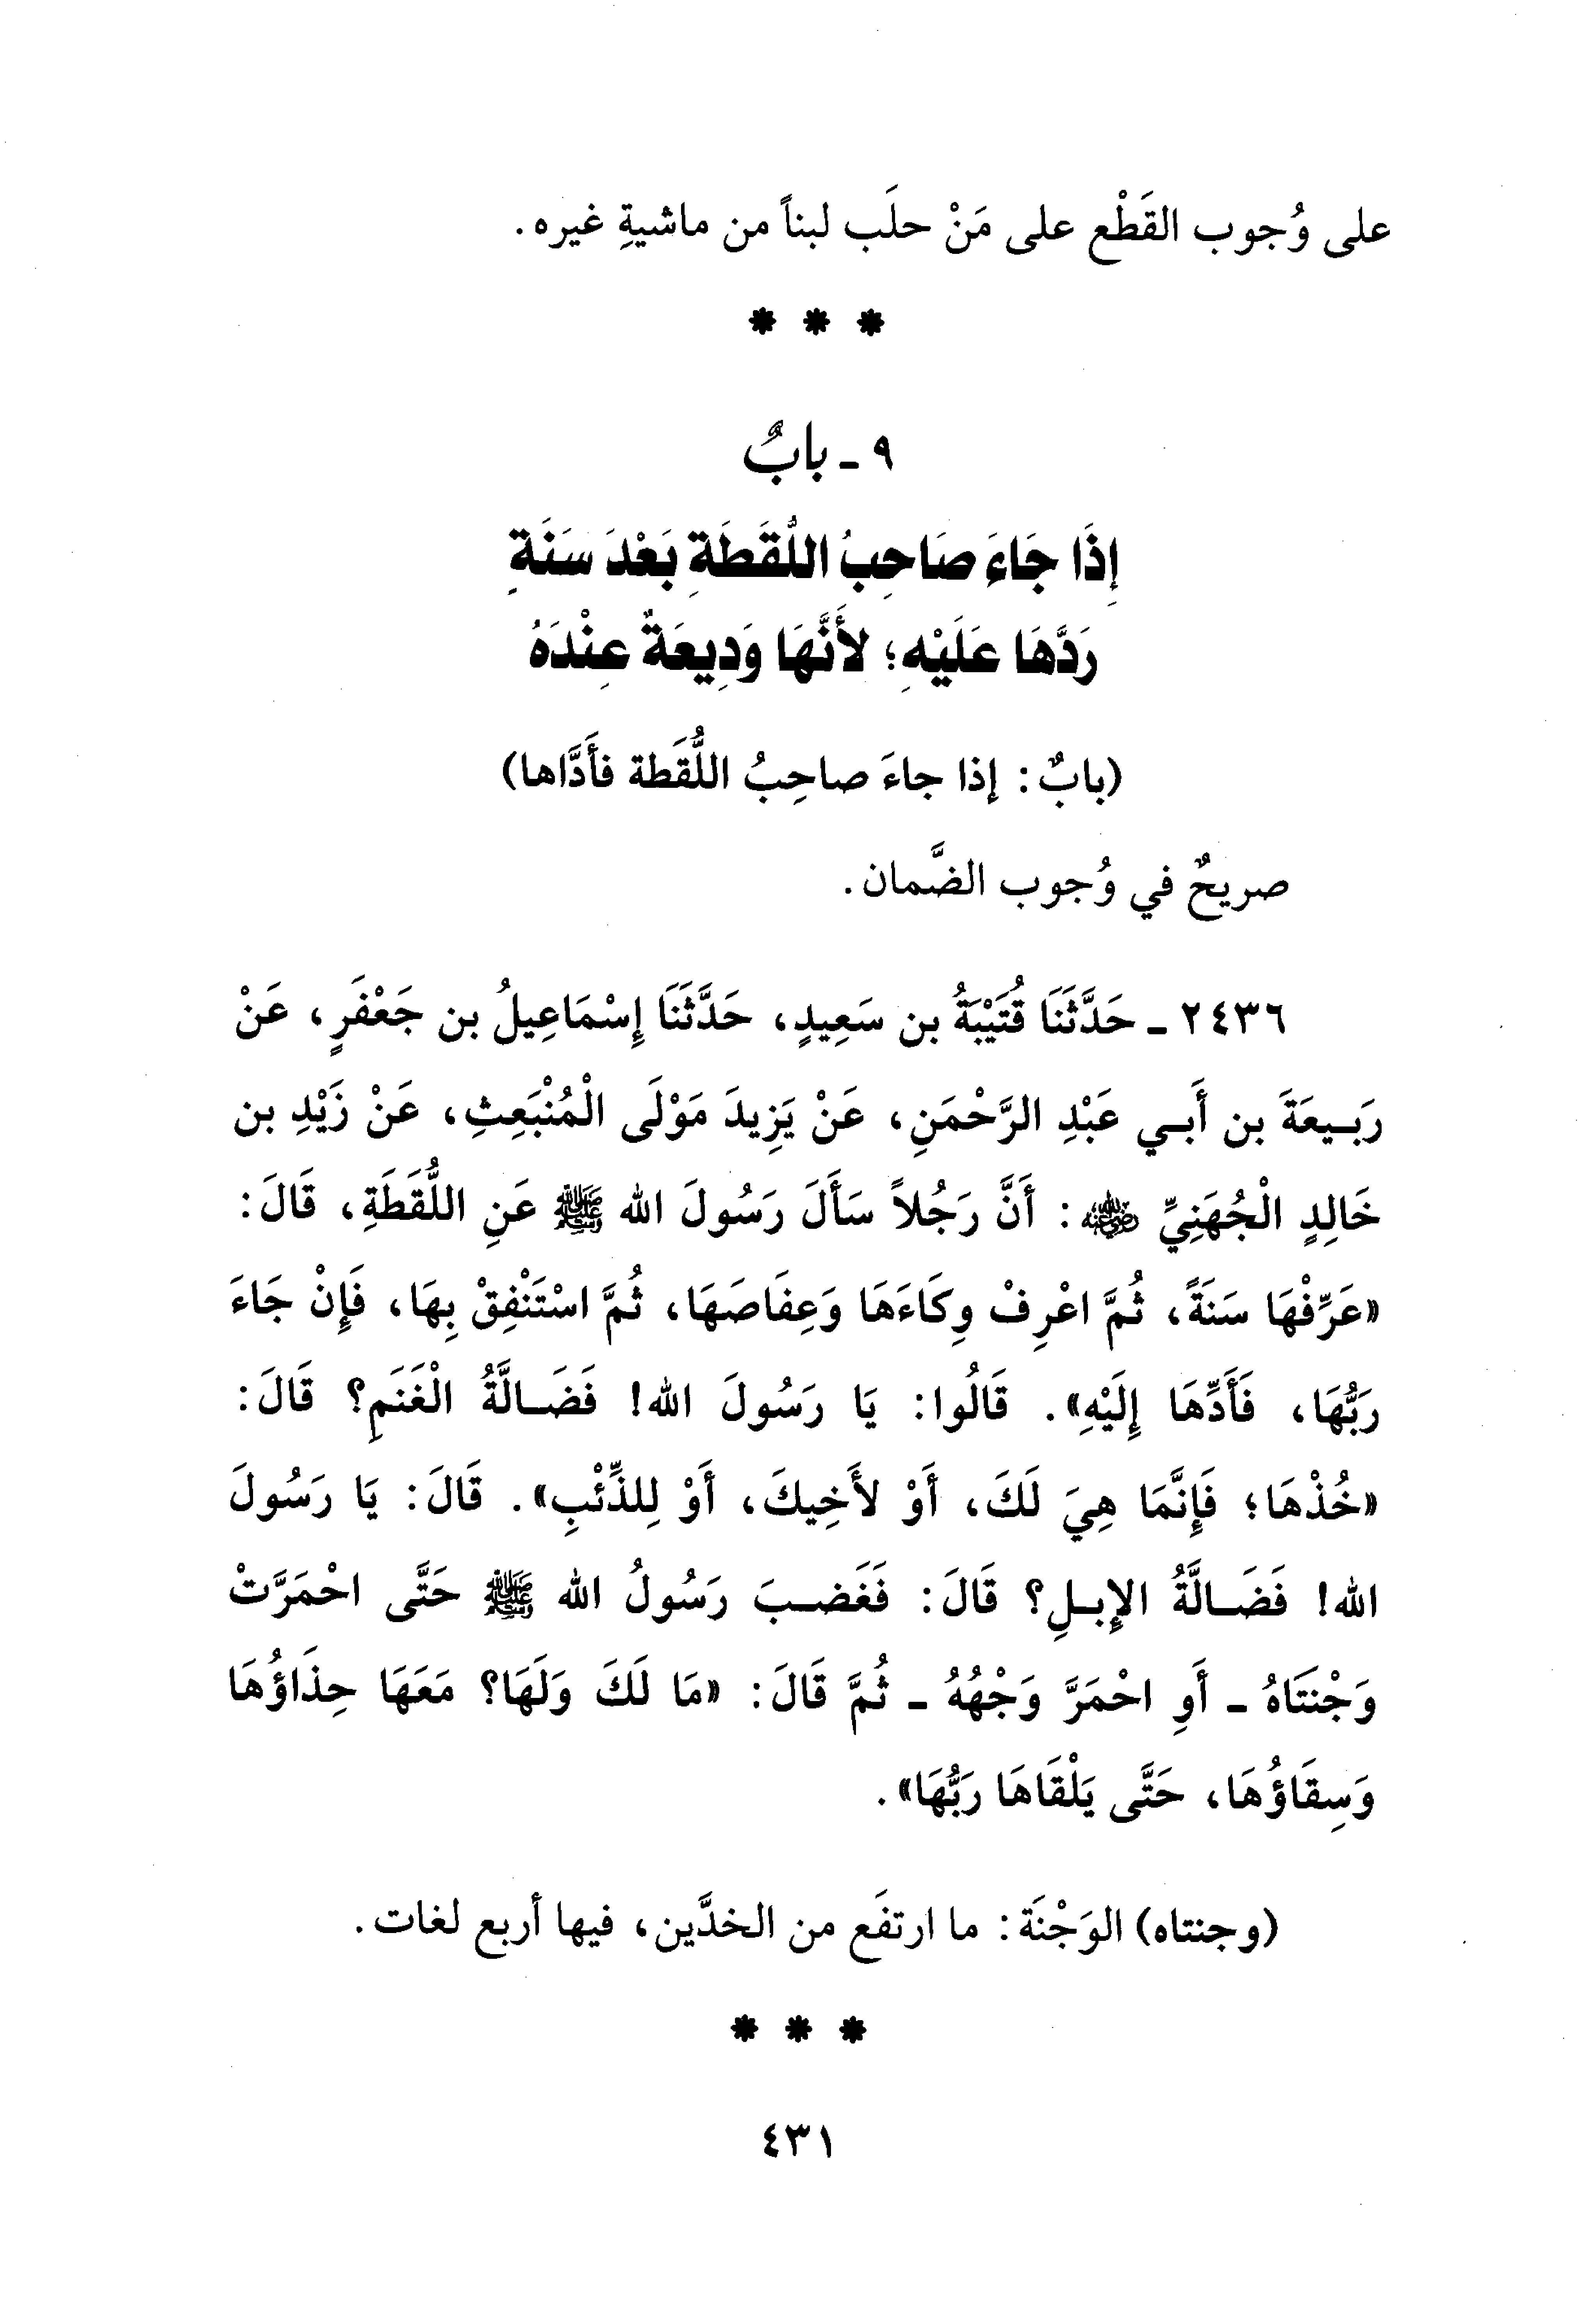 على وُجوب القَطْع على مَنْ حلَب لبناً من ماشيةِ غيره.
* * *
٩ ـ بابٌ
إِذَا جَاءَ صَاحِبُ اللُّقَطَةِ بَعْدَ سَنَةٍ
رَدَّهَا عَلَيْهِ؛ لأَنَّهَا وَدِيعَةٌ عِنْدَهُ
(بابٌ: إذا جاءَ صاحِبُ اللُّقَطة فأَدَّاها)
صريحٌ في وُجوب الضَّمان.
٢٤٣٦ ـ حَدَّثَنَا قُتَيْبَةُ بن سَعِيدٍ، حَدَّثَنَا إِسْمَاعِيلُ بن جَعْفَرٍ، عَنْ
رَبِيعَةَ بن أَبي عَبْدِ الرَّحْمَنِ، عَنْ يَزِيدَ مَوْلَى الْمُنْبَعِثِ، عَنْ زَيْدِ بن
خَالِدٍ الْجُهَنِيِّ ﵁: أَنَّ رَجُلاً سَأَلَ رَسُولَ الله ﷺ عَنِ اللُّقَطَةِ، قَالَ:
«عَرِّفْهَا سَنَةً، ثُمَّ اعْرِفْ وِكَاءَهَا وَعِفَاصَهَا، ثُمَّ اسْتَنْفِقْ بِهَا، فَإِنْ جَاءَ
رَبُّهَا، فَأَدِّهَا إِلَيْهِ». قَالُوا: يَا رَسُولَ الله! فَضَالَّةُ الْغَنَمِ؟ قَالَ:
«خُذْهَا؛ فَإِنَّمَا هِيَ لَكَ، أَوْ لأَخِيكَ، أَوْ لِلذِّئْبِ». قَالَ: يَا رَسُولَ
الله! فَضَالَّةُ الإِبلِ؟ قَالَ: فَغَضبَ رَسُولُ الله ﷺ حَتَّى احْمَرَّتْ
وَجْنَتَاهُ ـ أَوِ احْمَرَّ وَجْهُهُ ـ ثُمَّ قَالَ: «مَا لَكَ وَلَهَا؟ مَعَهَا حِذَاؤُهَا
وَسِقَاؤُهَا، حَتَّى يَلْقَاهَا رَبُّهَا».
(وجنتاه) الوَجْنَة: ما ارتفَع من الخدَّين، فيها أربع لغات.
* * *
٤٣١